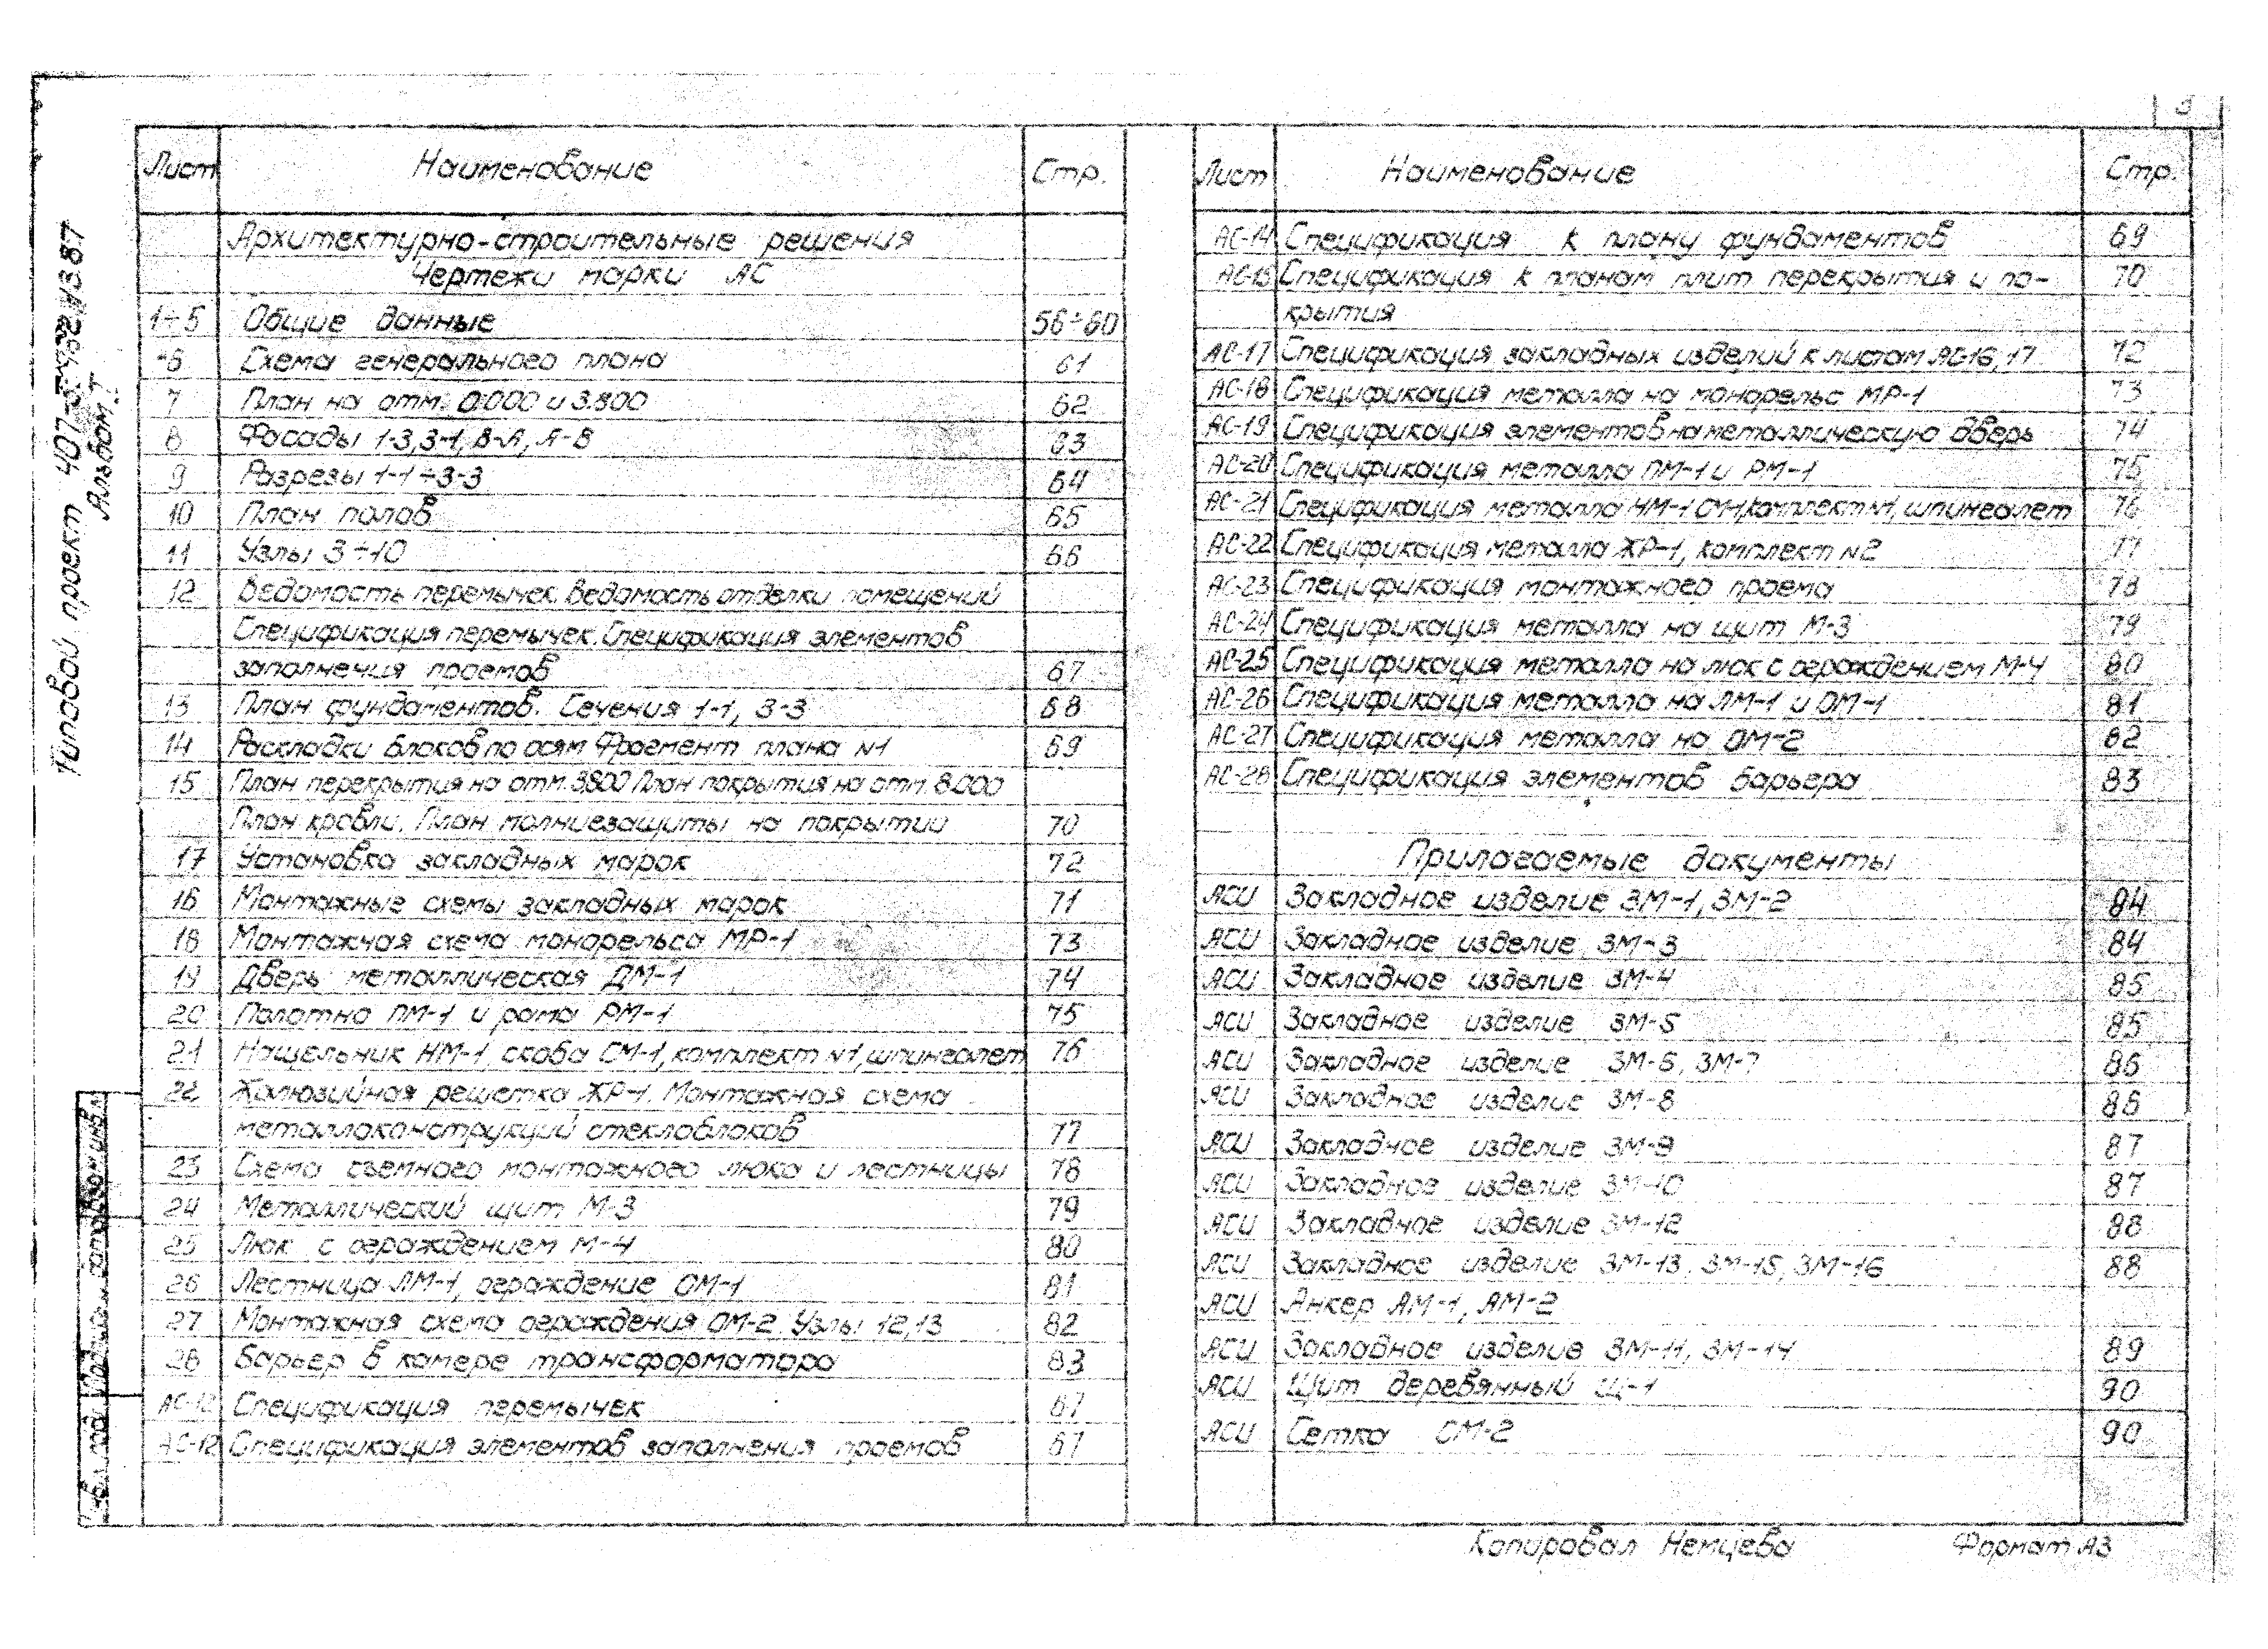 Лист Наименование Стр.
Архитектурно-строительные решения
Чертежи марки АС
1÷5 Общие данные 56÷60
6 Схема генерального плана 61
7 План на отм. 0.000 и 3.800 62
8 Фасады 1-3, 3-1, В-А, А-В 63
9 Разрезы 1-1÷3-3 64
10 План полов 65
11 Узлы 3÷10 66
12 Ведомость перемычек. Ведомость отделки помещений
Спецификация перемычек. Спецификация элементов
заполнения проемов 67
13 План фундаментов. Сечения 1-1, 3-3 68
14 Раскладки блоков по осям Фрагмент плана N1 69
15 План перекрытия на отм. 3.800 План покрытия на отм. 8.000
План кровли. План молниезащиты на покрытии 70
17 Установка закладных марок 72
16 Монтажные схемы закладных марок 71
18 Монтажная схема монорельса МР-1 73
19 Дверь металлическая ДМ-1 74
20 Полотно ПМ-1 и рама РМ-1 75
21 Нащельник НМ-1, скоба СМ-1, комплект N1, шпингалет 76
22 Жалюзийная решетка ЖР-1. Монтажная схема
металлоконструкций стеклоблоков 77
23 Схема съемного монтажного люка и лестницы 78
24 Металлический щит М-3 79
25 Люк с ограждением М-4 80
26 Лестница ЛМ-1, ограждение ОМ-1 81
27 Монтажная схема ограждения ОМ-2. Узлы 12,13 82
28 Барьер в камере трансформатора 83
АС-12 Спецификация перемычек 67
АС-12 Спецификация элементов заполнения проемов 67
Лист Наименование Стр.
АС-14 Спецификация к плану фундаментов 69
АС-15 Спецификация к планам плит перекрытия и по-
крытия 70
АС-17 Спецификация закладных изделий к листам АС-16, 17 72
АС-18 Спецификация металла на монорельс МР-1 73
АС-19 Спецификация элементов на металлическую дверь 74
АС-20 Спецификация металла ПМ-1 и РМ-1 75
АС-21 Спецификация металла НМ-1 СМ-1, комплект N1, шпингалет 76
АС-22 Спецификация металла ЖР-1, комплект N2 77
АС-23 Спецификация монтажного проема 78
АС-24 Спецификация металла на щит М-3 79
АС-25 Спецификация металла на люк с ограждением М-4 80
АС-26 Спецификация металла на ЛМ-1 и ОМ-1 81
АС-27 Спецификация металла на ОМ-2 82
АС-28 Спецификация элементов барьера 83
Прилагаемые документы
АСИ Закладное изделие ЗМ-1, ЗМ-2 84
АСИ Закладное изделие ЗМ-3 84
АСИ Закладное изделие ЗМ-4 85
АСИ Закладное изделие ЗМ-5 85
АСИ Закладное изделие ЗМ-6, ЗМ-7 86
АСИ Закладное изделие ЗМ-8 86
АСИ Закладное изделие ЗМ-9 87
АСИ Закладное изделие ЗМ-10 87
АСИ Закладное изделие ЗМ-12 88
АСИ Закладное изделие ЗМ-13, ЗМ-15, ЗМ-16 88
АСИ Анкер АМ-1, АМ-2
АСИ Закладное изделие ЗМ-11, ЗМ-14 89
АСИ Щит деревянный Щ-1 90
АСИ Сетка СМ-2 90
Копировал Немцева Формат А3
Типовой проект
Альбом I